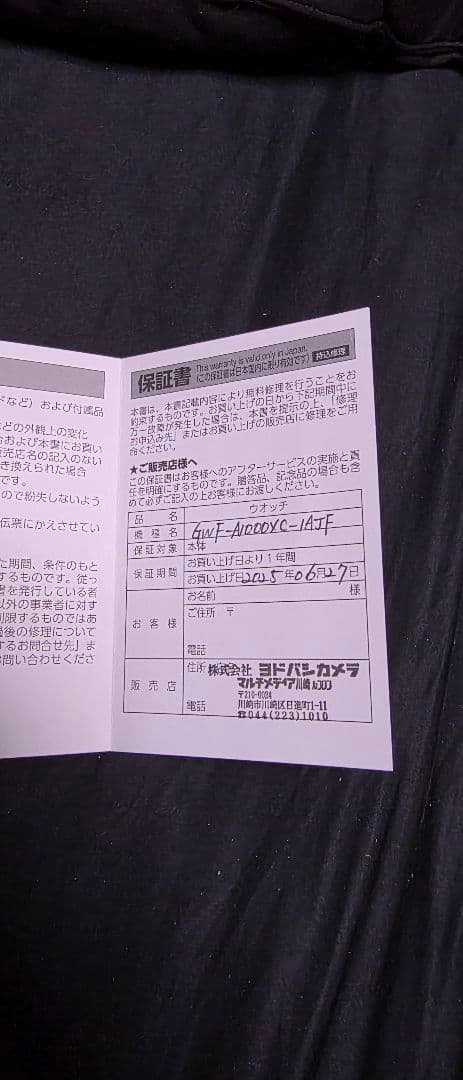 ドなど）および付属品
などの外観上の変化
および本書にお買い
販売店名の記入のない
き換えられた場合
です。
ので紛失しないよう
伝票にかえさせてい
た期間、条件のもと
するものです。従っ
書を発行している者
以外の事業者に対す
制限するものではあ
過後の修理について
するお問合せ先」ま
お問い合わせくださ
保証書 This warranty is valid only in Japan.
(この保証書は日本国内に限り有効です) 持込修理
本書は、本書記載内容により無料修理を行うことをお
約束するものです。お買い上げの日から下記期間中に
万一故障が発生した場合は、本書を提示の上、「修理
お申込み先」またはお買い上げの販売店に修理をご用
命ください。
★ご販売店様へ
この保証書はお客様へのアフターサービスの実施と責
任を明確にするものです。贈答品、記念品の場合も含
めて必ずご記入の上お客様にお渡しください。
品名 ウオッチ
機種名 GWF-A1000XC-1AJF
保証対象 本体
保証期間 お買い上げ日より1年間
お買い上げ日 2025年06月27日
お客様 お名前 様
ご住所 〒
電話
販売店 住所 株式会社 ヨドバシカメラ
マルチメディア川崎ルフロン
〒210-0024
川崎市川崎区日進町1-11
電話 ☎044(223)1010